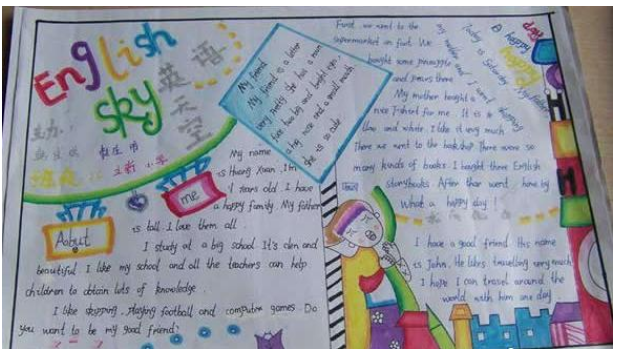 English
sky
英语
天空
About
me
My name
is Huang Xuan, I'm
years old. I have
a happy family. My father
is tall. I love them all.
I study at a big school. It's clen and
beautiful. I like my school and all the teachers can help
children to obtain lots of knowledge.
I like shopping, playing football and computer games. Do
you want to be my good friend?
My friend
My friend is a
very pretty she has a
face two big and bright eyes
a big nose and a small mouth
she is so cute
A happy
day
Today is Saturday
my mother and I went shopping
First, we went to the
supermarket on foot. We
bought some pineapple
and pears there
My mother bought a
nice T-shirt for me. It is
and white. I like it very much
There we went to the bookshop There were so
many kinds of books. I bought three English
storybooks. After that went home by
What a happy day!
I have a good friend His name
is John, He likes travelling very much
I hope I can travel around the
world with him one day